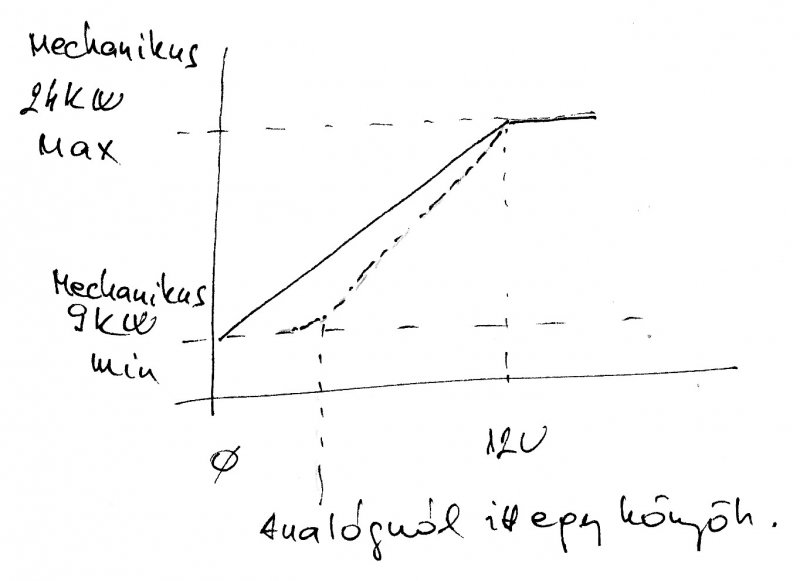 Mechanikus
24KW
Max
Mechanikus
9KW
Min
Ø
12V
Analógnál itt egy könyök.